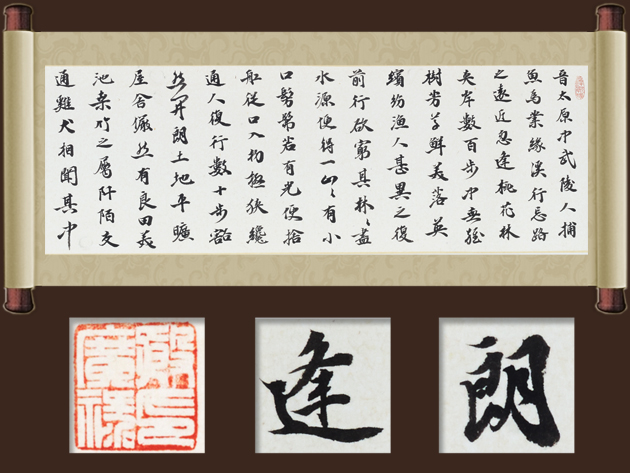 晋太原中武陵人捕
魚為業緣溪行忘路
之遠近忽逢桃花林
夾岸數百步中無雜
樹芳草鮮美落英
繽紛漁人甚異之復
前行欲窮其林〻盡
水源便得一山〻有小
口髣髴若有光便捨
船從口入初極狹纔
通人復行數十步豁
然開朗土地平曠
屋舍儼然有良田美
池桑竹之屬阡陌交
通雞犬相聞其中
逢
朗